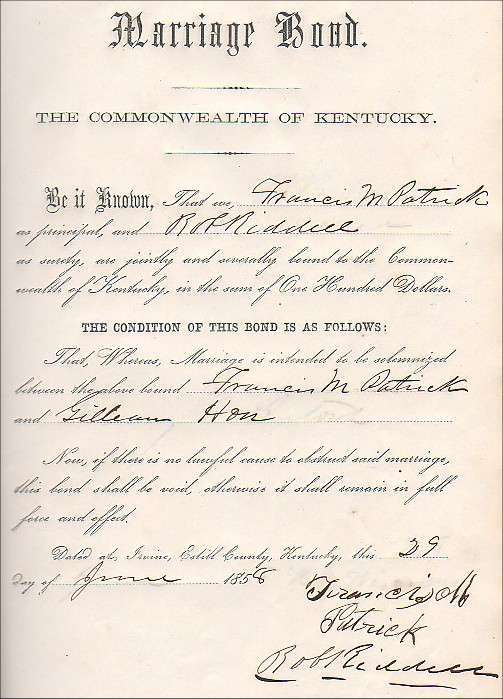 Marriage Bond.
THE COMMONWEALTH OF KENTUCKY.
Be it Known, That we, Francis M Patrick
as principal, and Rob Riddell
as surety, are jointly and severally bound to the Common-
wealth of Kentucky, in the sum of One Hundred Dollars.
THE CONDITION OF THIS BOND IS AS FOLLOWS:
That, Whereas, Marriage is intended to be solemnized
between the above bound Francis M Patrick
and Gilleann Hon
Now, if there is no lawful cause to obstruct said marriage,
this bond shall be void, otherwise it shall remain in full
force and effect.
Dated at Irvine, Estill County, Kentucky, this 29
day of June 1858
Francis M
Patrick
Rob Riddell